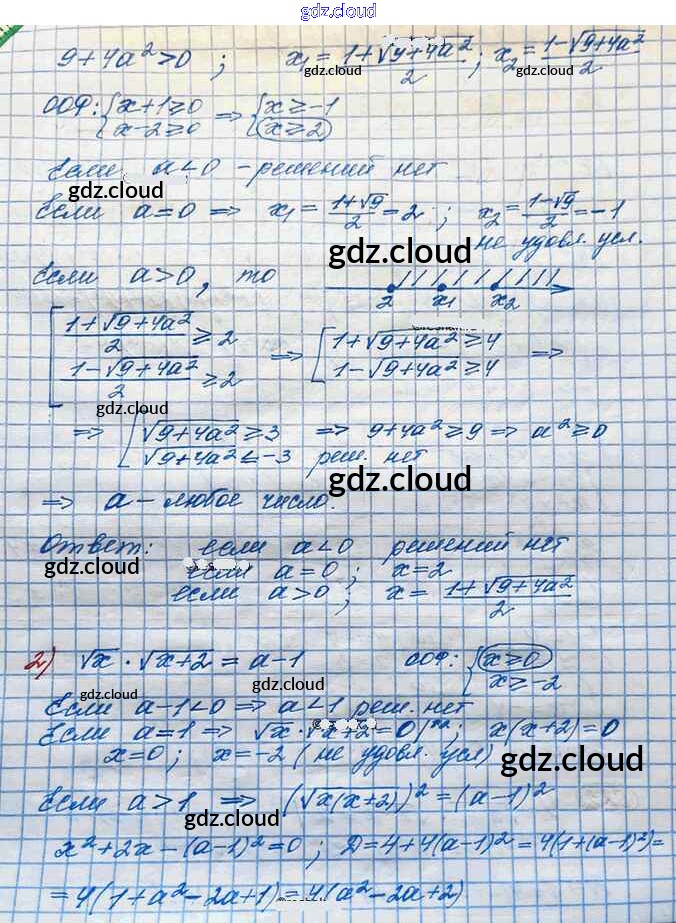 gdz.cloud
9+4a²>0 ; x₁=(1+√(9+4a²))/2 ; x₂=(1-√(9+4a²))/2
gdz.cloud gdz.cloud
ООФ: {x+1≥0 x-2≥0 => {x≥-1 x≥2
Если a<0 - решений нет
gdz.cloud
Если a=0 => x₁=(1+√9)/2=2 ; x₂=(1-√9)/2=-1
не удовл. усл.
gdz.cloud
Если a>0, то 2 x₁ x₂
[(1+√(9+4a²))/2≥2 (1-√(9+4a²))/2≥2 => [1+√(9+4a²)≥4 1-√(9+4a²)≥4 =>
gdz.cloud
=> [√(9+4a²)≥3 => 9+4a²≥9 => a²≥0
√(9+4a²)≤-3 реш. нет
gdz.cloud
=> a - любое число.
Ответ: если a<0 решений нет
gdz.cloud
если a=0 ; x=2
если a>0 ; x=(1+√(9+4a²))/2
gdz.cloud
2) √x·√(x+2)=a-1 ООФ: {x≥0 x≥-2
gdz.cloud gdz.cloud
Если a-1<0 => a<1 реш. нет
Если a=1 => √x·√(x+2)=0 |² ; x(x+2)=0
x=0 ; x=-2 (не удовл. усл)
gdz.cloud
Если a>1 => (√x(x+2))²=(a-1)²
gdz.cloud
x²+2x-(a-1)²=0 ; D=4+4(a-1)²=4(1+(a-1)²)=
=4(1+a²-2a+1)=4(a²-2a+2)
gdz.cloud